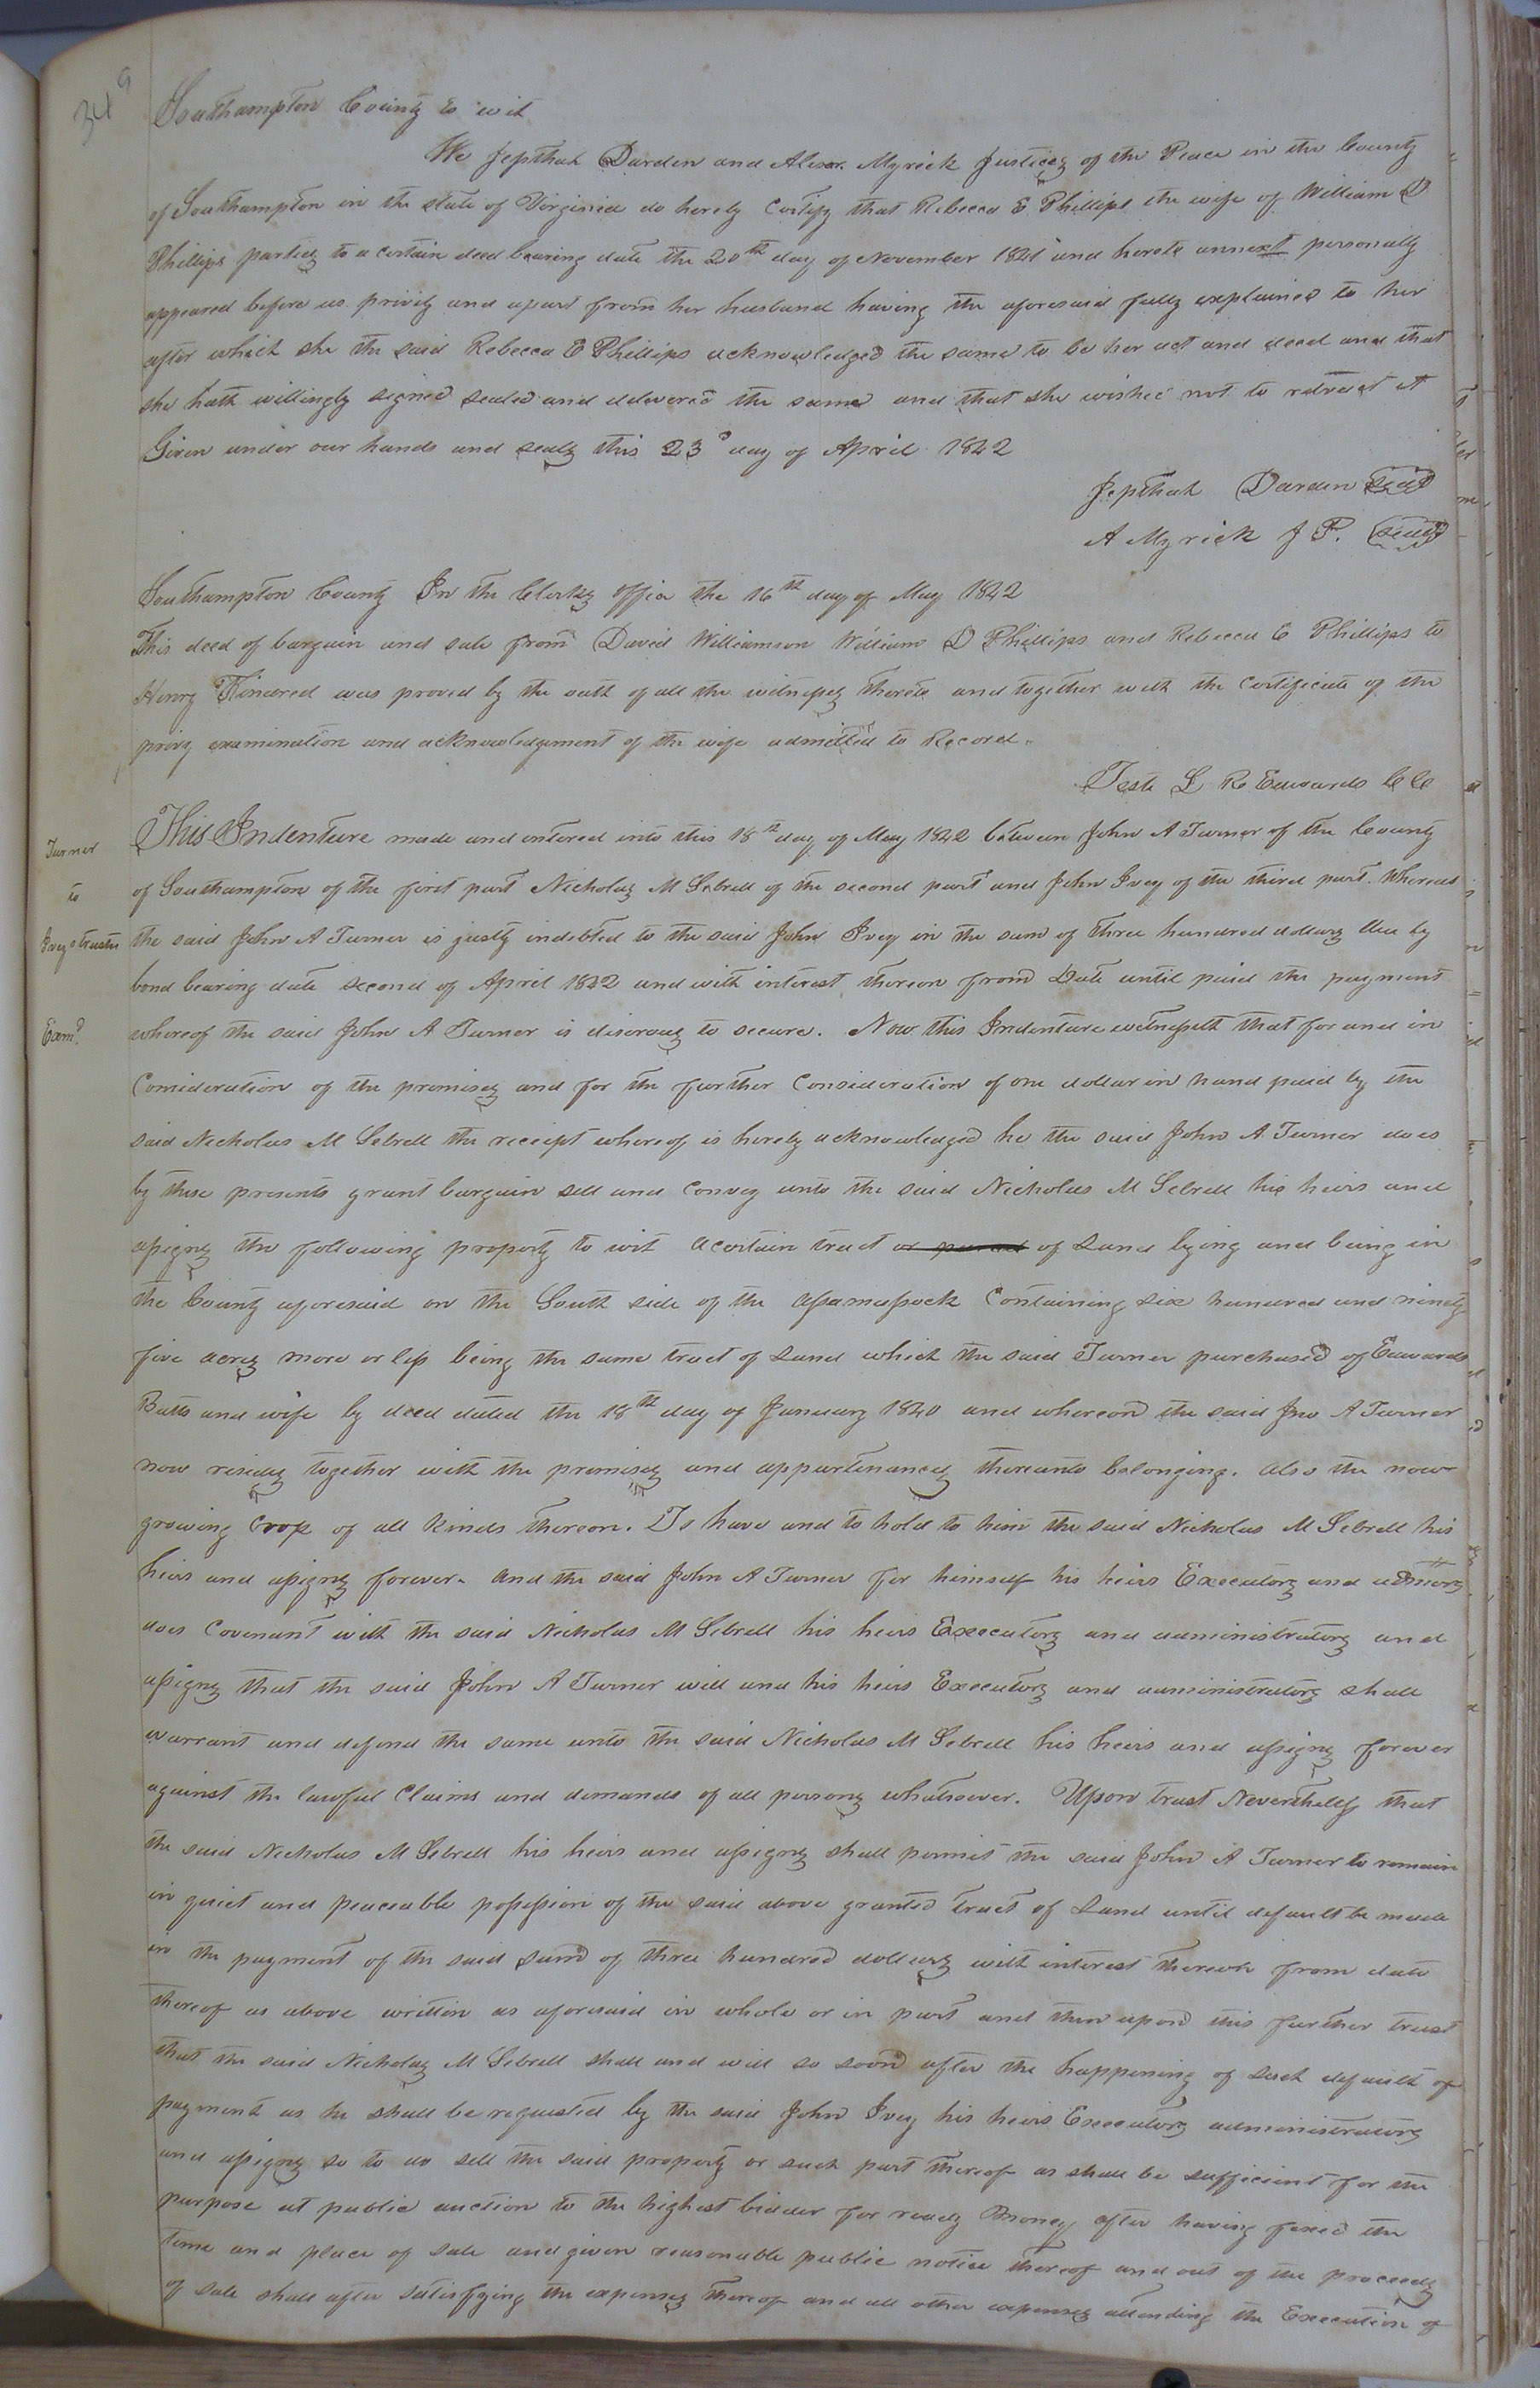 349
Southampton County to wit
We Jepthah Darden and Alexr. Myrick Justices of the Peace in the County
of Southampton in the state of Virginia do hereby Certify that Rebecca E Phillips the wife of William D
Phillips parties to a certain deed bearing date the 20th day of November 1841 and hereto annext personally
appeared before us privily and apart from her husband having the aforesaid fully explained to her
after which she the said Rebecca E Phillips acknowledged the same to be her act and deed and that
she hath willingly signed sealed and delivered the same and that she wished not to retract it
Given under our hands and seals this 23d day of April 1842
Jepthah Darden Seal
A Myrick J P. Seal
Southampton County In the Clerks office the 16th day of May 1842
This deed of bargain and sale from David Williamson William D Phillips and Rebecca E Phillips to
Henry Kindred was proved by the oath of all the witnesses thereto and together with the Certificate of the
privy examination and acknowledgement of the wife admitted to Record.
Teste L R Edwards CC
Turner
to
Iveys trustee
Examd.
This Indenture made and entered into this 18th day of May 1842 between John A Turner of the County
of Southampton of the first part Nicholas M Sebrell of the second part and John Ivey of the third part. Whereas
the said John A Turner is justly indebted to the said John Ivey in the sum of three hundred dollars due by
bond bearing date second of April 1842 and with interest thereon from Date until paid the payment
whereof the said John A Turner is disirous to secure. Now this Indenture witnesseth that for and in
Consideration of the premises and for the further Consideration of one dollar in hand paid by the
said Nicholas M Sebrell the receipt whereof is hereby acknowledged he the said John A. Turner does
by these presents grant bargain sell and Convey unto the said Nicholas M Sebrell his heirs and
assigns the following property to wit a certain tract or parcel of Land lying and being in
the County aforesaid on the South side of the Assamusock Containing six hundred and ninety
five acres more or less being the same tract of Land which the said Turner purchased of Edwards
Butts and wife by deed dated the 18th day of January 1840 and whereon the said Jno A Turner
now resides together with the premises and appurtenances thereunto belonging. also the now
growing Crop of all Kinds thereon. To have and to hold to him the said Nicholas M Sebrell his
heirs and assigns forever. And the said John A Turner for himself his heirs Executors and admors
does Covenant with the said Nicholas M Sebrell his heirs Executors and administrators and
assigns that the said John A Turner will and his heirs Executors and administrators shall
warrant and defend the same unto the said Nicholas M Sebrell his heirs and assigns forever
against the lawful Claims and demands of all persons whatsoever. Upon trust Nevertheless that
the said Nicholas M Sebrell his heirs and assigns shall permit the said John A Turner to remain
in quiet and peaceable possession of the said above granted tract of Land until default be made
in the payment of the said sum of three hundred dollars with interest thereon from date
thereof as above written as aforesaid in whole or in part and then upon this further trust
that the said Nicholas M Sebrell shall and will so soon after the happening of such default of
payment as he shall be requested by the said John Ivey his heirs Executors administrators
and assigns so to do sell the said property or such part thereof as shall be sufficient for the
purpose at public auction to the highest bidder for ready Money after having fixed the
time and place of sale and given reasonable public notice thereof and out of the proceeds
of sale shall after satisfying the expenses thereof and all other expenses attending the Execution of